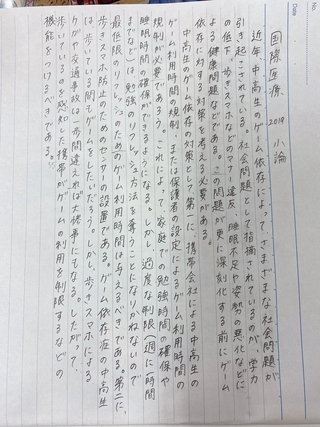 国際医療 2019 小論
近年、中高生のゲーム依存によってさまざまな社会問題が
引き起こされている。社会問題として指摘されているのが、学力
の低下、歩きスマホなどのマナー違反、睡眠不足や姿勢の悪化などに
よる健康問題などである。この問題が更に深刻化する前にゲーム
依存に対する対策を考える必要がある。
中高生のゲーム依存の対策として、第一に、携帯会社による中高生の
ゲーム利用時間の規制、または保護者の設定によるゲーム利用時間の
規制が必要であろう。これによって、家庭での勉強時間の確保や
睡眠時間の確保ができるようになる。しかし、過度な制限(週に一時間
までなど)は勉強のリフレッシュ方法を奪うことになりかねないので
最低限のリフレッシュのためのゲーム利用時間は与えるべきである。第二に、
歩きスマホ防止のためのセンサーの設置である。ゲーム依存症の中高生
は、歩いている間もゲームをしたいだろう。しかし、歩きスマホによる
ケガや交通事故は一歩間違えれば大惨事にもなる。したがって、
歩いているのを感知した携帯がゲームの利用を制限するなどの
機能をつけるべきである。